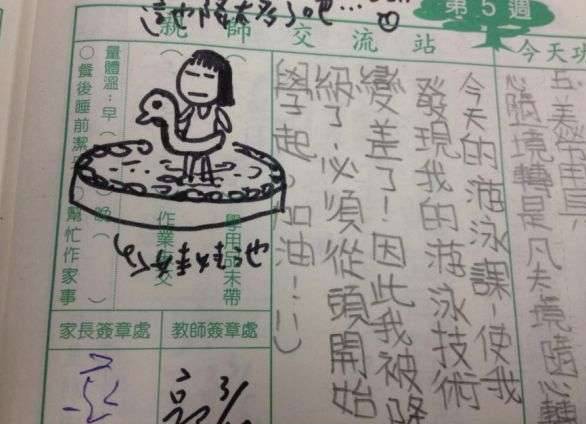 這也降太多了吧…
第5週
親師交流站
今天功
五、美勞用具
心隨境轉是凡夫,境隨心轉
今天的游泳課,使我
發現我的游泳技術
變差了!因此我被降
級了,必須從頭開始
學起。加油!:)
量體溫:早( )晚( )
○餐後睡前潔
幫忙作家事
學用品未帶
作業
交
家長簽章處
教師簽章處
3/